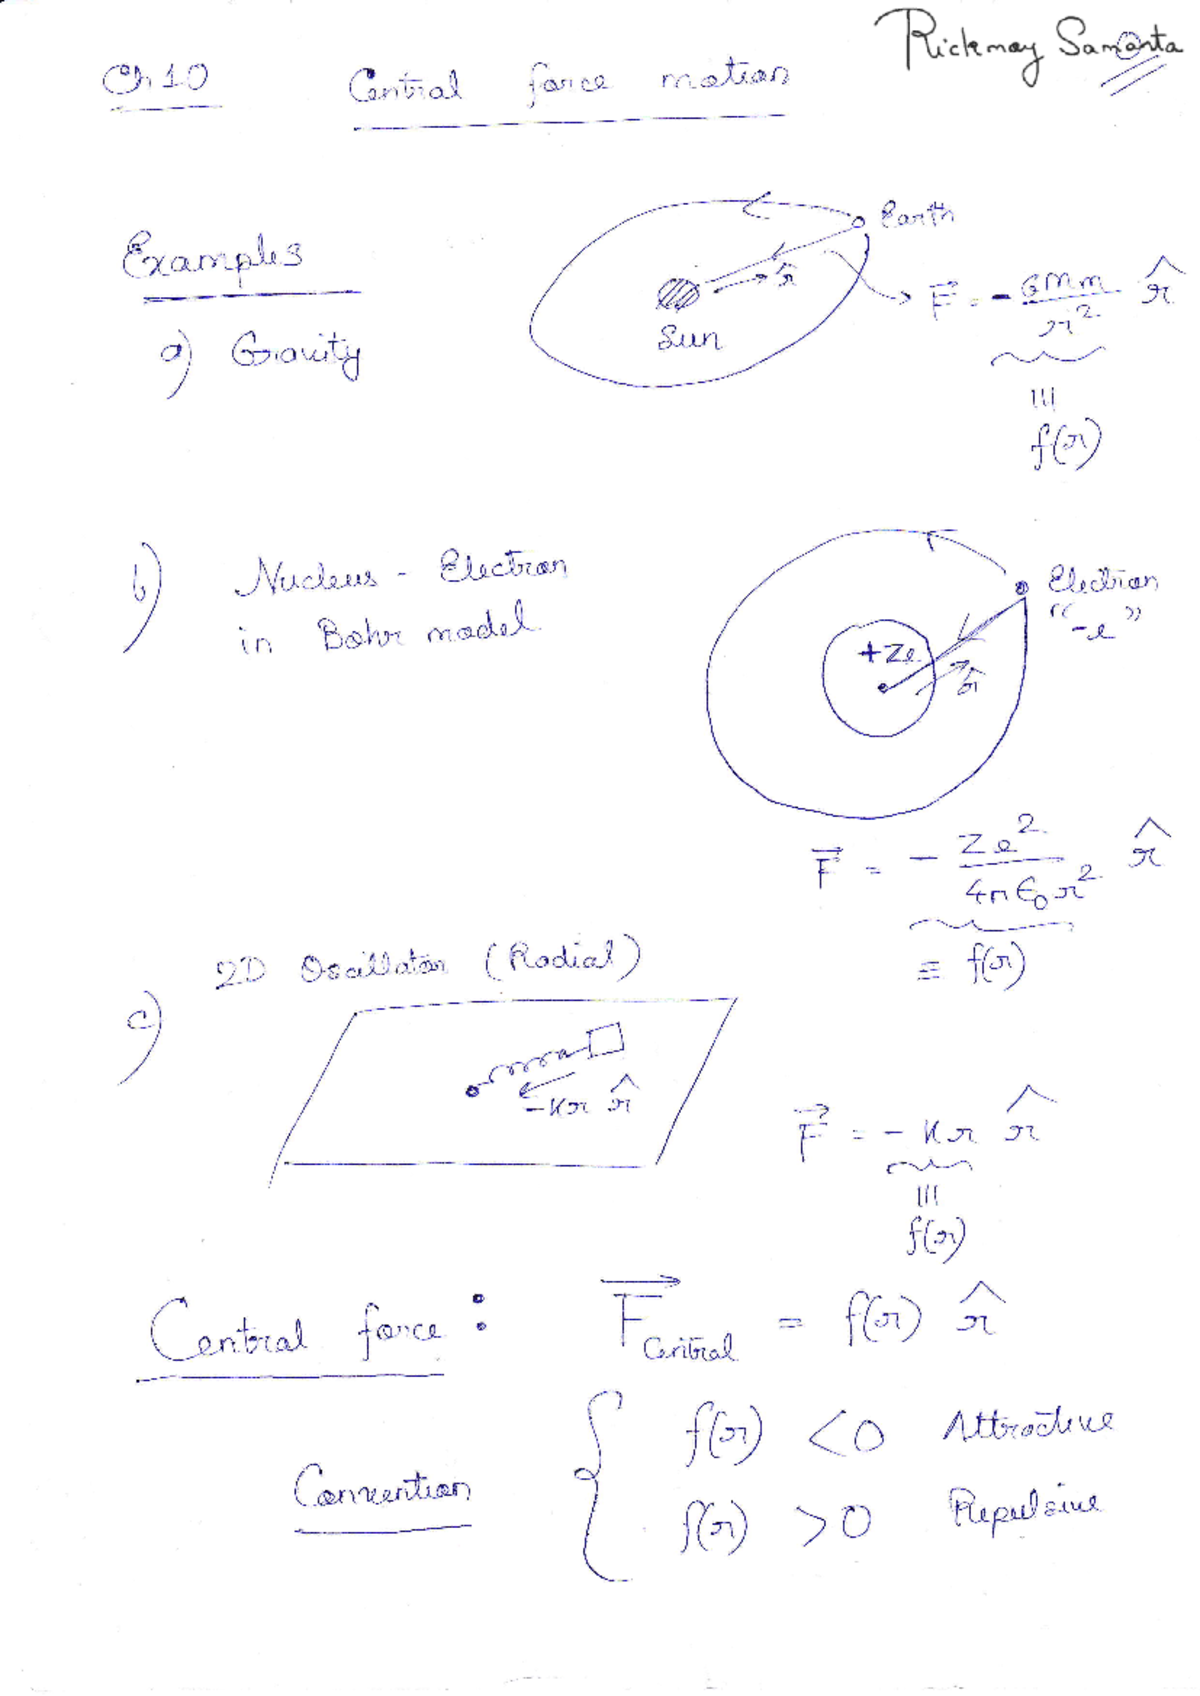 Rickmoy Samanta
Ch 10 Central force motion
Examples
a) Gravity
Earth
r̂
Sun
F⃗ = - GMm/r² r̂
≡
f(r)
b) Nucleus - Electron
in Bohr model
Electron
"-e"
+Ze
r̂
F⃗ = - Ze²/4πϵ₀r² r̂
≡ f(r)
c) 2D Oscillator (Radial)
-Kr r̂
F⃗ = - Kr r̂
≡
f(r)
Central force : F⃗ Central = f(r) r̂
Convention { f(r) < 0 Attractive
f(r) > 0 Repulsive